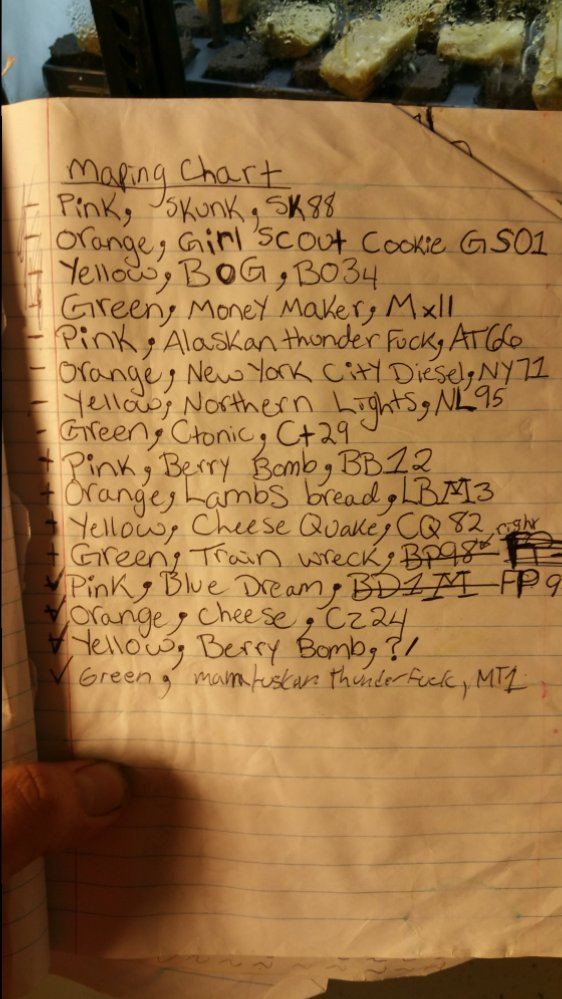 Maping Chart
- Pink, Skunk, SK88
- Orange, Girl Scout Cookie GS01
- Yellow, BOG, BO34
Green, Money Maker, Mx11
- Pink, Alaskan thunder Fuck, AT66
- Orange, New York City Diesel, NY71
- Yellow, Northern Lights, NL95
- Green, Ctonic, Ct29
+ Pink, Berry Bomb, BB12
+ Orange, Lambs bread, LBM3
+ Yellow, Cheese Quake, CQ 82
right
+ Green, Train wreck, BP98
✓ Pink, Blue Dream, BD1M FP9
✓ Orange, cheese, Cz24
✓ Yellow, Berry Bomb, ?1
✓ Green, thunder Fuck, MT1